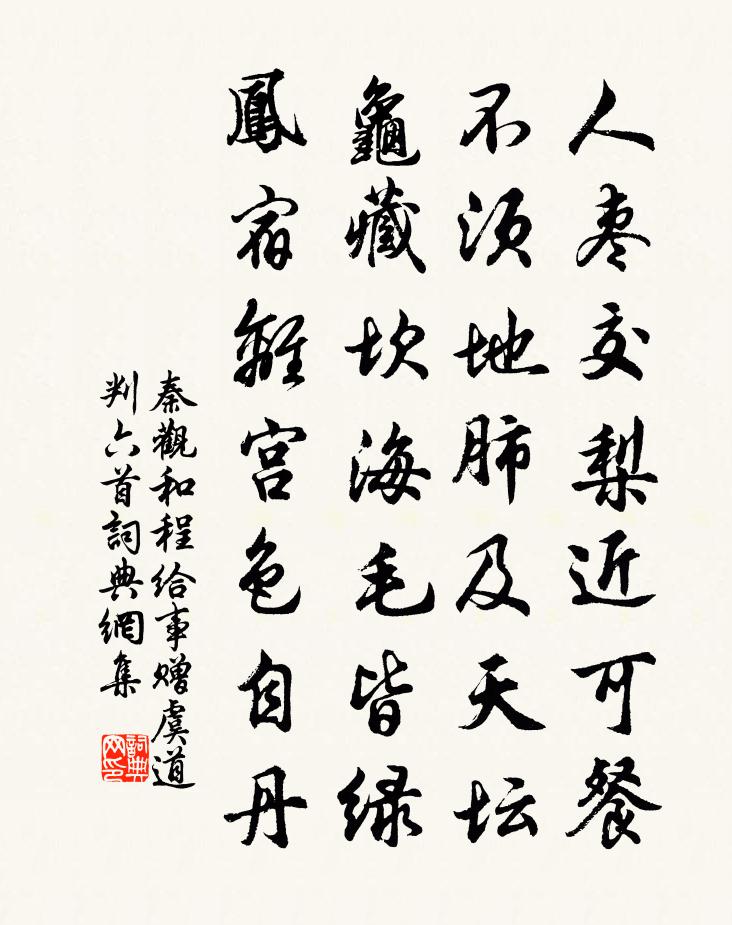 人枣交梨近可餐
不须地肺及天坛
龜藏坎海毛皆绿
鳳宿離宫色自丹
秦觀和程给事赠虞道
判六首詞典網集
詞典
网印